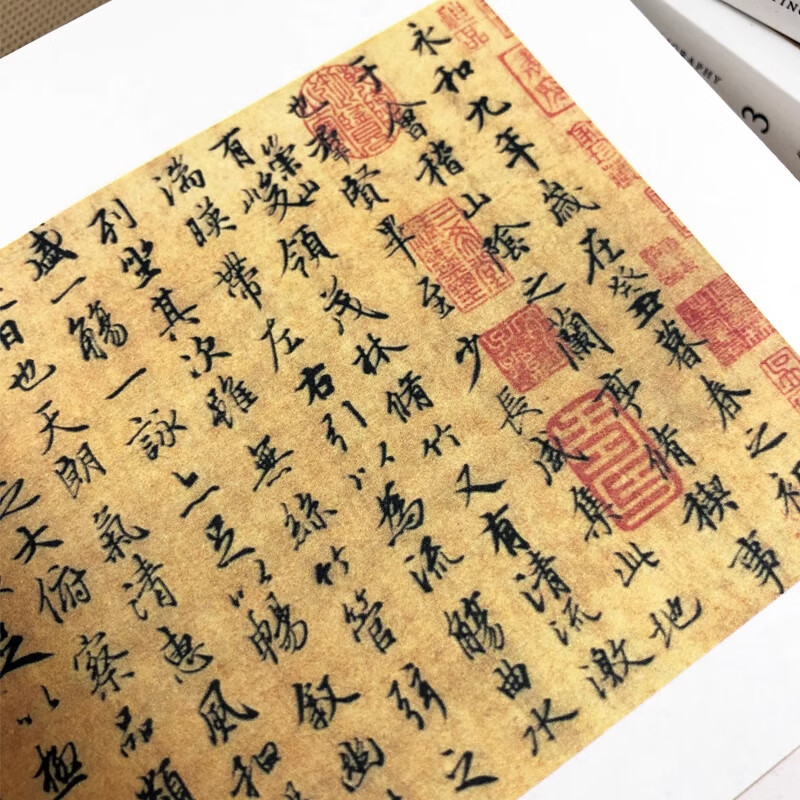 永和九年歲在癸丑暮春之初
于會稽山陰之蘭亭脩稧事
也群賢畢至少長咸集此地
有崇山峻領茂林脩竹又有清流激
湍暎帶左右引以為流觴曲水
列坐其次雖無絲竹管弦之
盛一觴一詠亦足以暢敘幽
日也天朗氣清惠風和
之大俯察品類
足以極
3